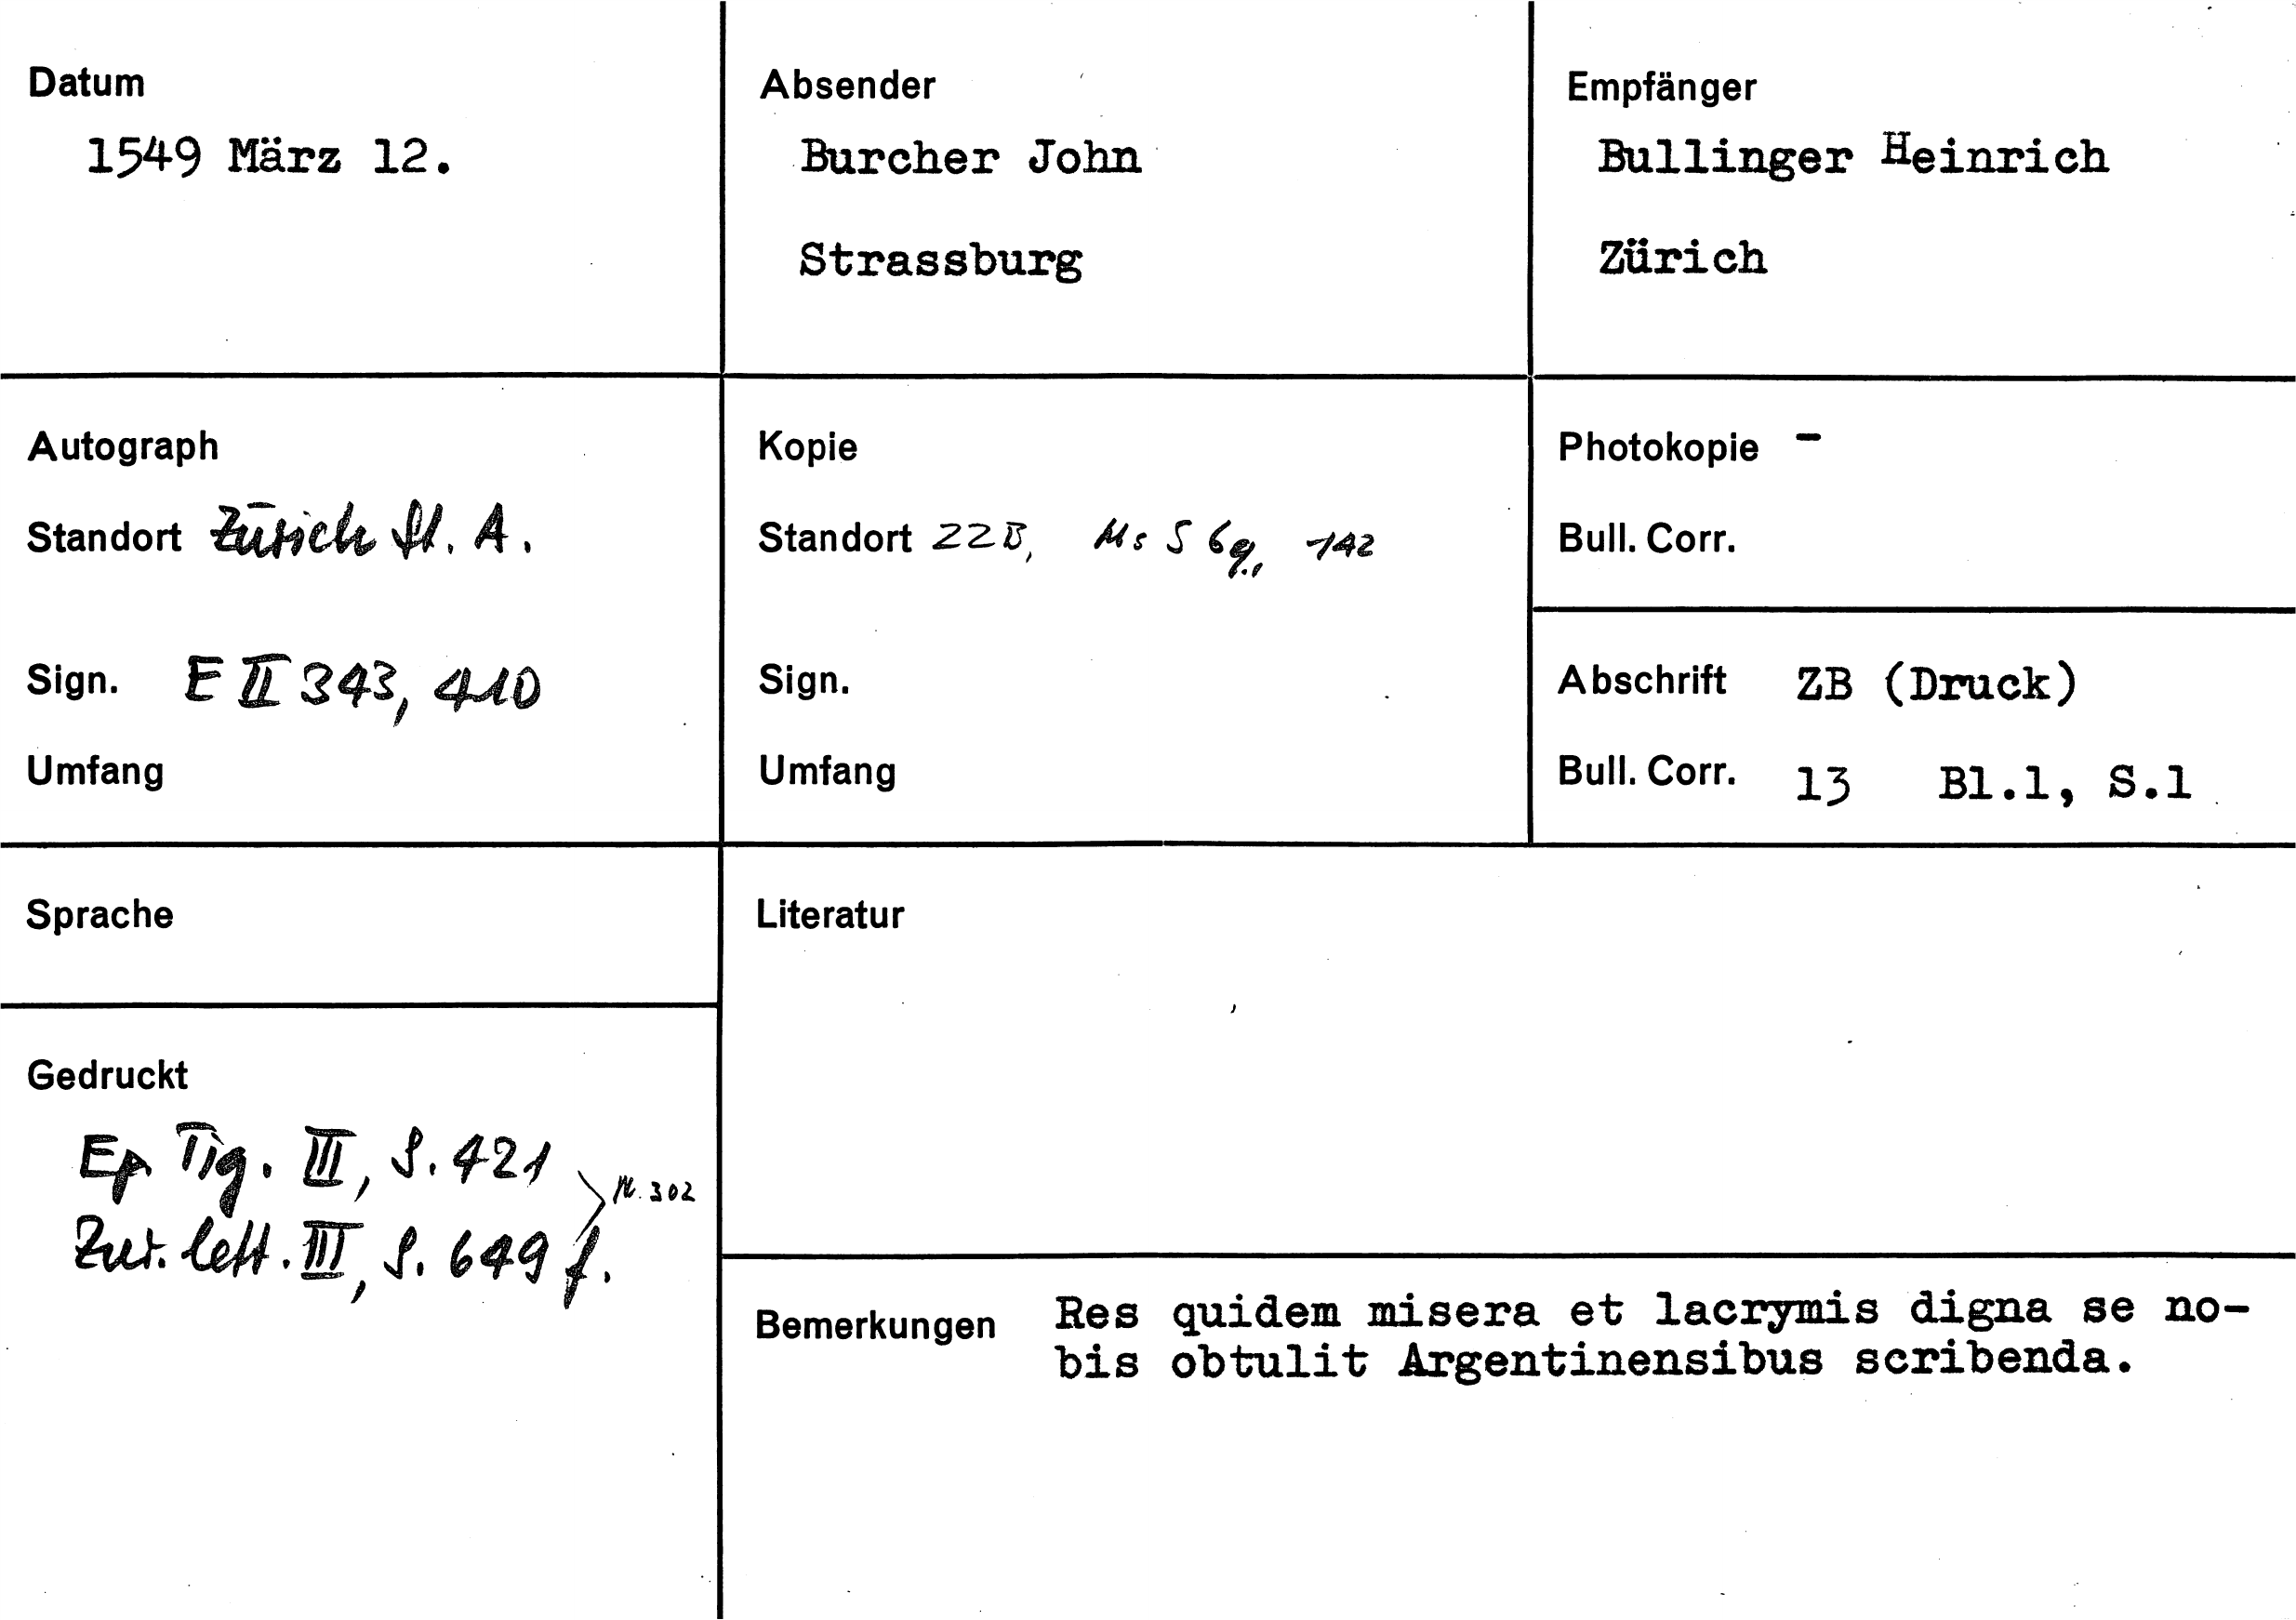 Datum
1549 März 12.
Absender
Burcher John
Strassburg
Empfänger
Bullinger Heinrich
Zürich
Autograph
Standort Zürich St. A.
Sign. E II 343, 410
Umfang
Kopie
Standort ZZB, Ms S 69, 142
Sign.
Umfang
Photokopie -
Bull. Corr.
Abschrift ZB (Druck)
Bull. Corr. 13 Bl.1, S.1
Sprache
Literatur
Gedruckt
Ep. Tig. III, S. 421
N. 302
Zur. lett. III, S. 649 f.
Bemerkungen Res quidem misera et lacrymis digna se no-
bis obtulit Argentinensibus scribenda.